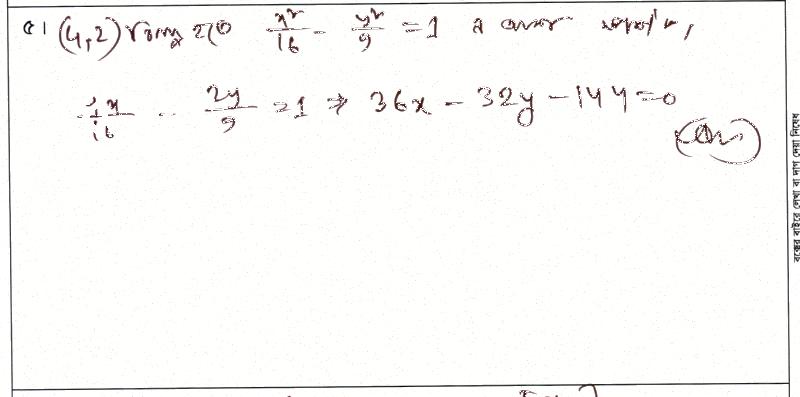 ৫। (4,2) বিন্দু হতে x²/16 - y²/9 = 1 এ
4x/16 - 2y/9 = 1 ⇒ 36x - 32y - 144 = 0
(Ans)
বক্সের বাইরে লেখা বা দাগ দেয়া নিষেধ